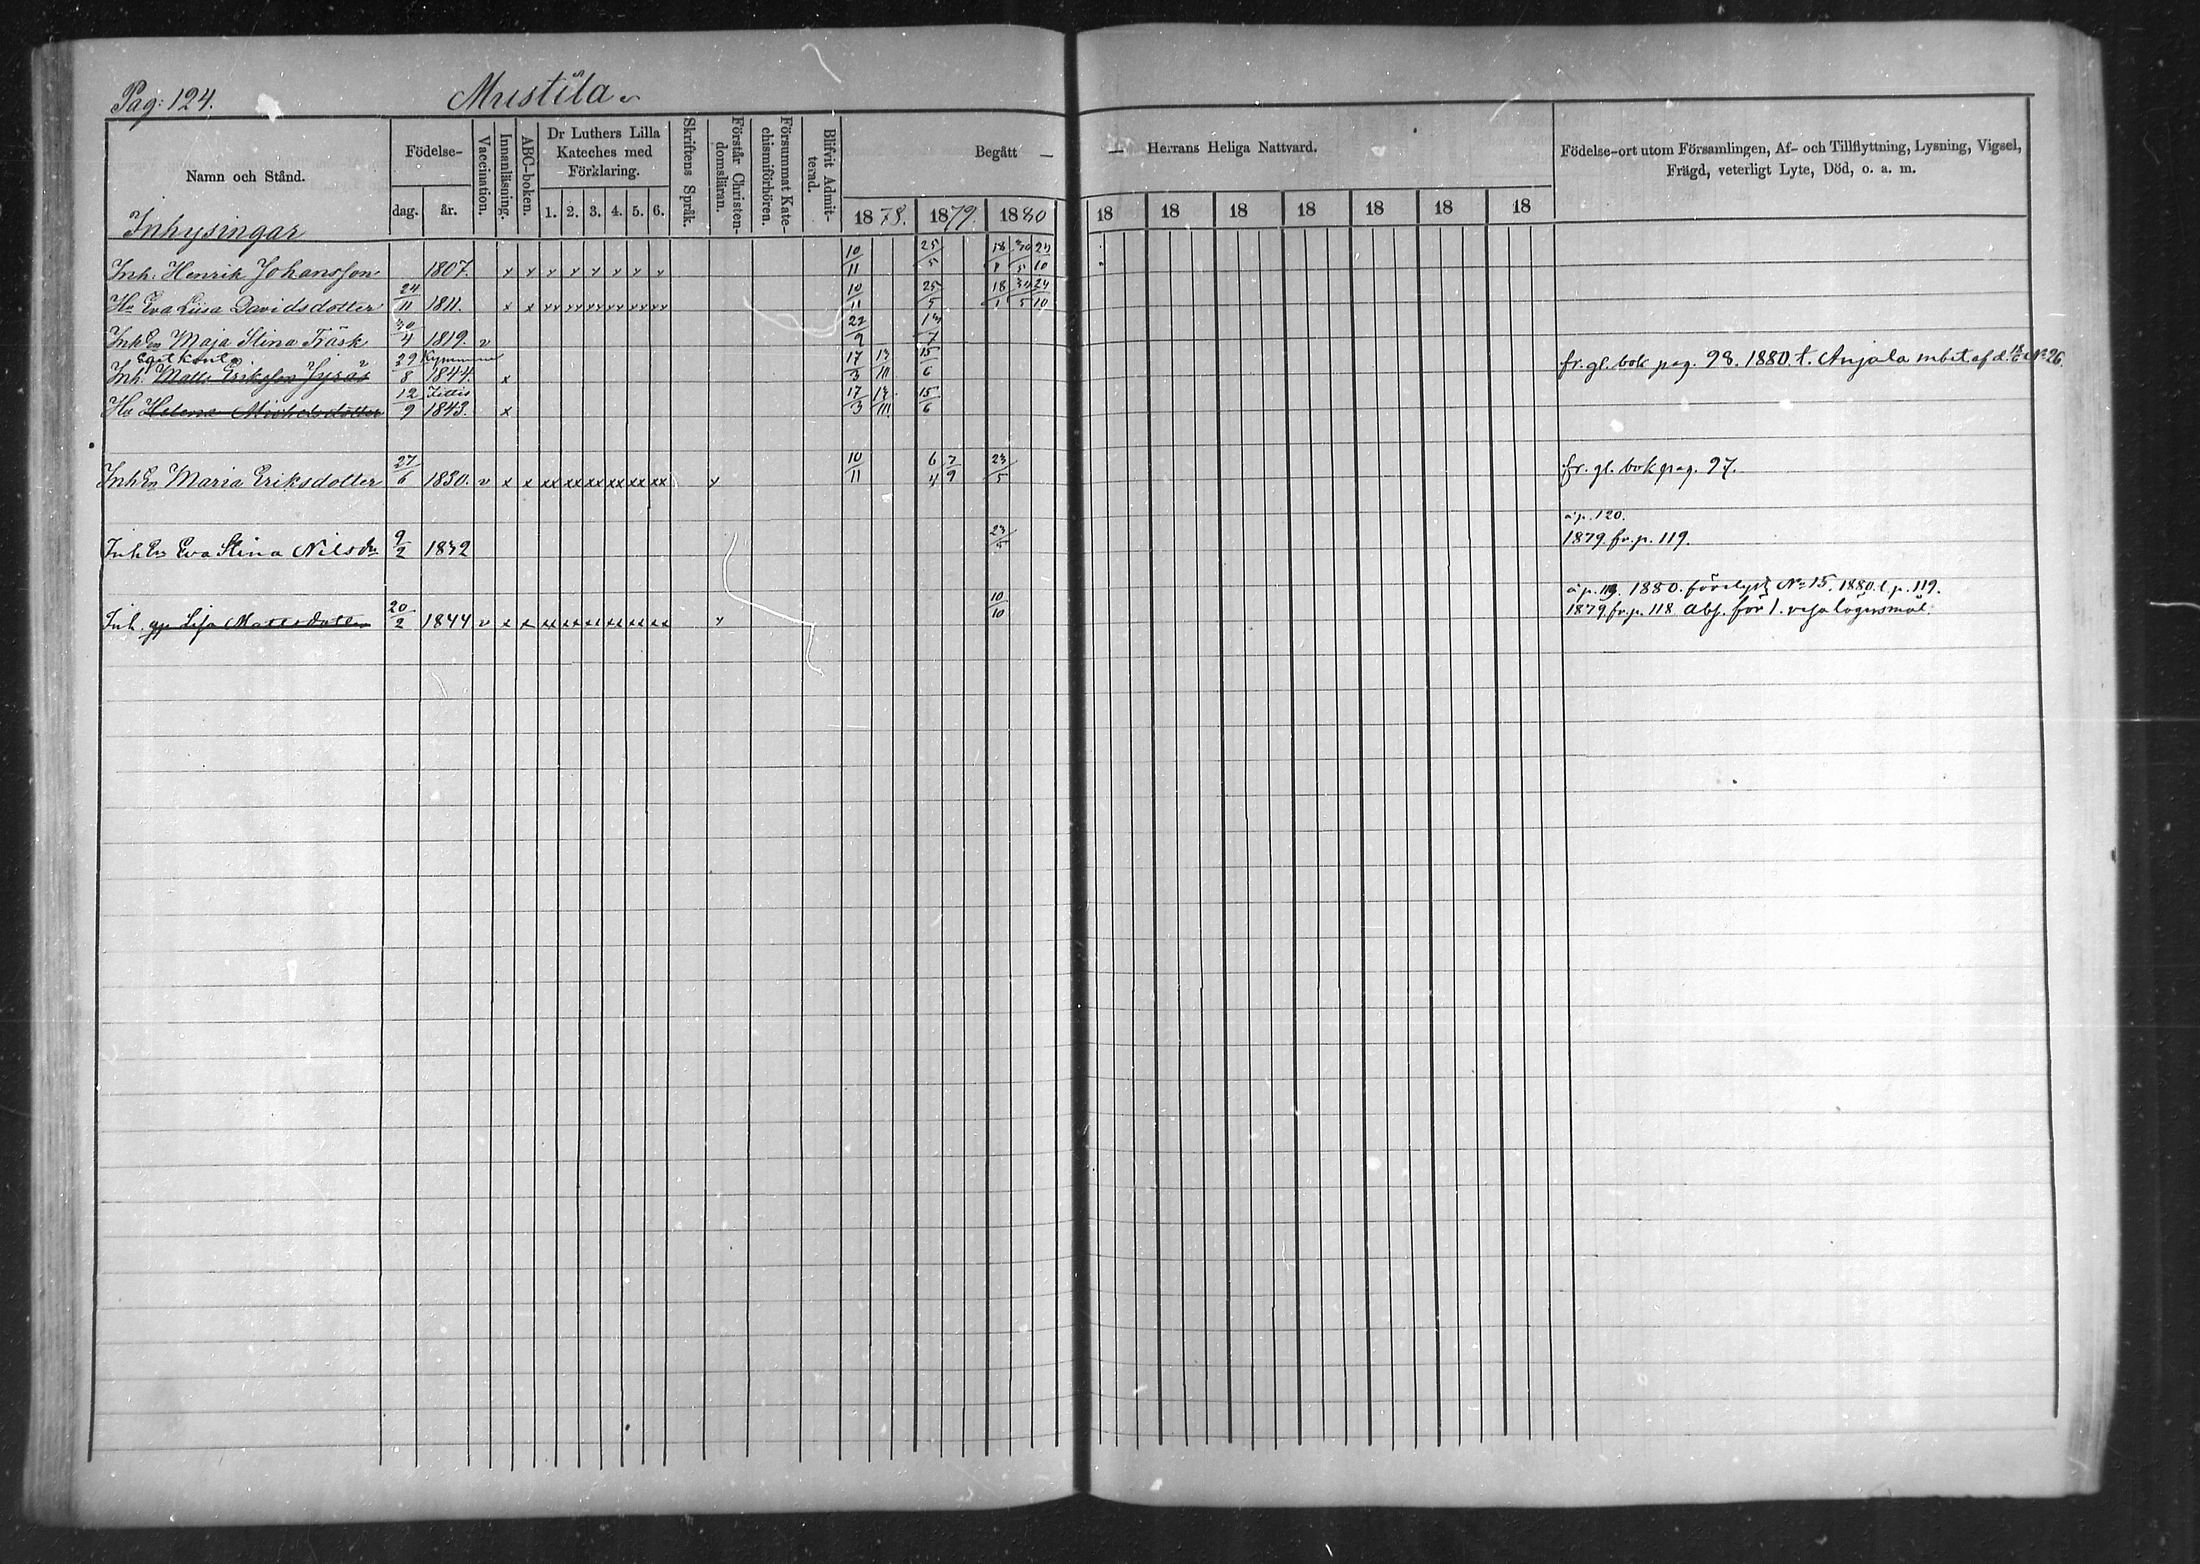 Pag: 124. Mustila
Namn och Stånd. Födelse- dag. år. Vaccination. Innanläsning. ABC-boken. Dr Luthers Lilla Kateches med Förklaring. 1. 2. 3. 4. 5. 6. Skriftens Språk. Förstår Christendomsläran. Försummat Katechismiförhören. Blifvit Admitterad. Begått — — Herrans Heliga Nattvard. Födelse-ort utom Församlingen, Af- och Tillflyttning, Lysning, Vigsel, Frägd, veterligt Lyte, Död, o. a. m.
1878. 1879. 1880 18 18 18 18 18 18 18
Inhysingar
Inh. Henrik Johansson 1807. x x x x x x x x 10/11 25/5 18/1 30/5 24/10
Hu Eva Liisa Davidsdotter 24/11 1811. x x xx xx xx xx xx xx 10/11 25/5 18/1 30/5 24/10
Inh Maja Stina Träsk 30/4 1819. v 22/9 13/7
Inh. Matts Eriksson 29/8 Kymmene 1844. x 17/3 15/6 fr. gl. bok pag. 98. 1880. t. Anjala mbet af d. No 26.
Hu Helena Michelsdotter 12/9 1843. x 17/3 15/6
Inh Maria Eriksdotter 27/6 1830. v x x xx xx xx xx xx xx x 10/11 6/4 7/9 23/5 fr. gl. bok pag. 97.
å p. 120.
Inh Eva Stina Nilsdr 9/2 1832 23/5 1879 fr. p. 119.
å p. 1880. No 15. 1880 t. p. 119.
Inh. Lisa Mattsdotter 20/2 1844 v x x xx xx xx xx xx xx x 10/10 1879 fr. p. 118. Abs. för 1. resa lägersmål.